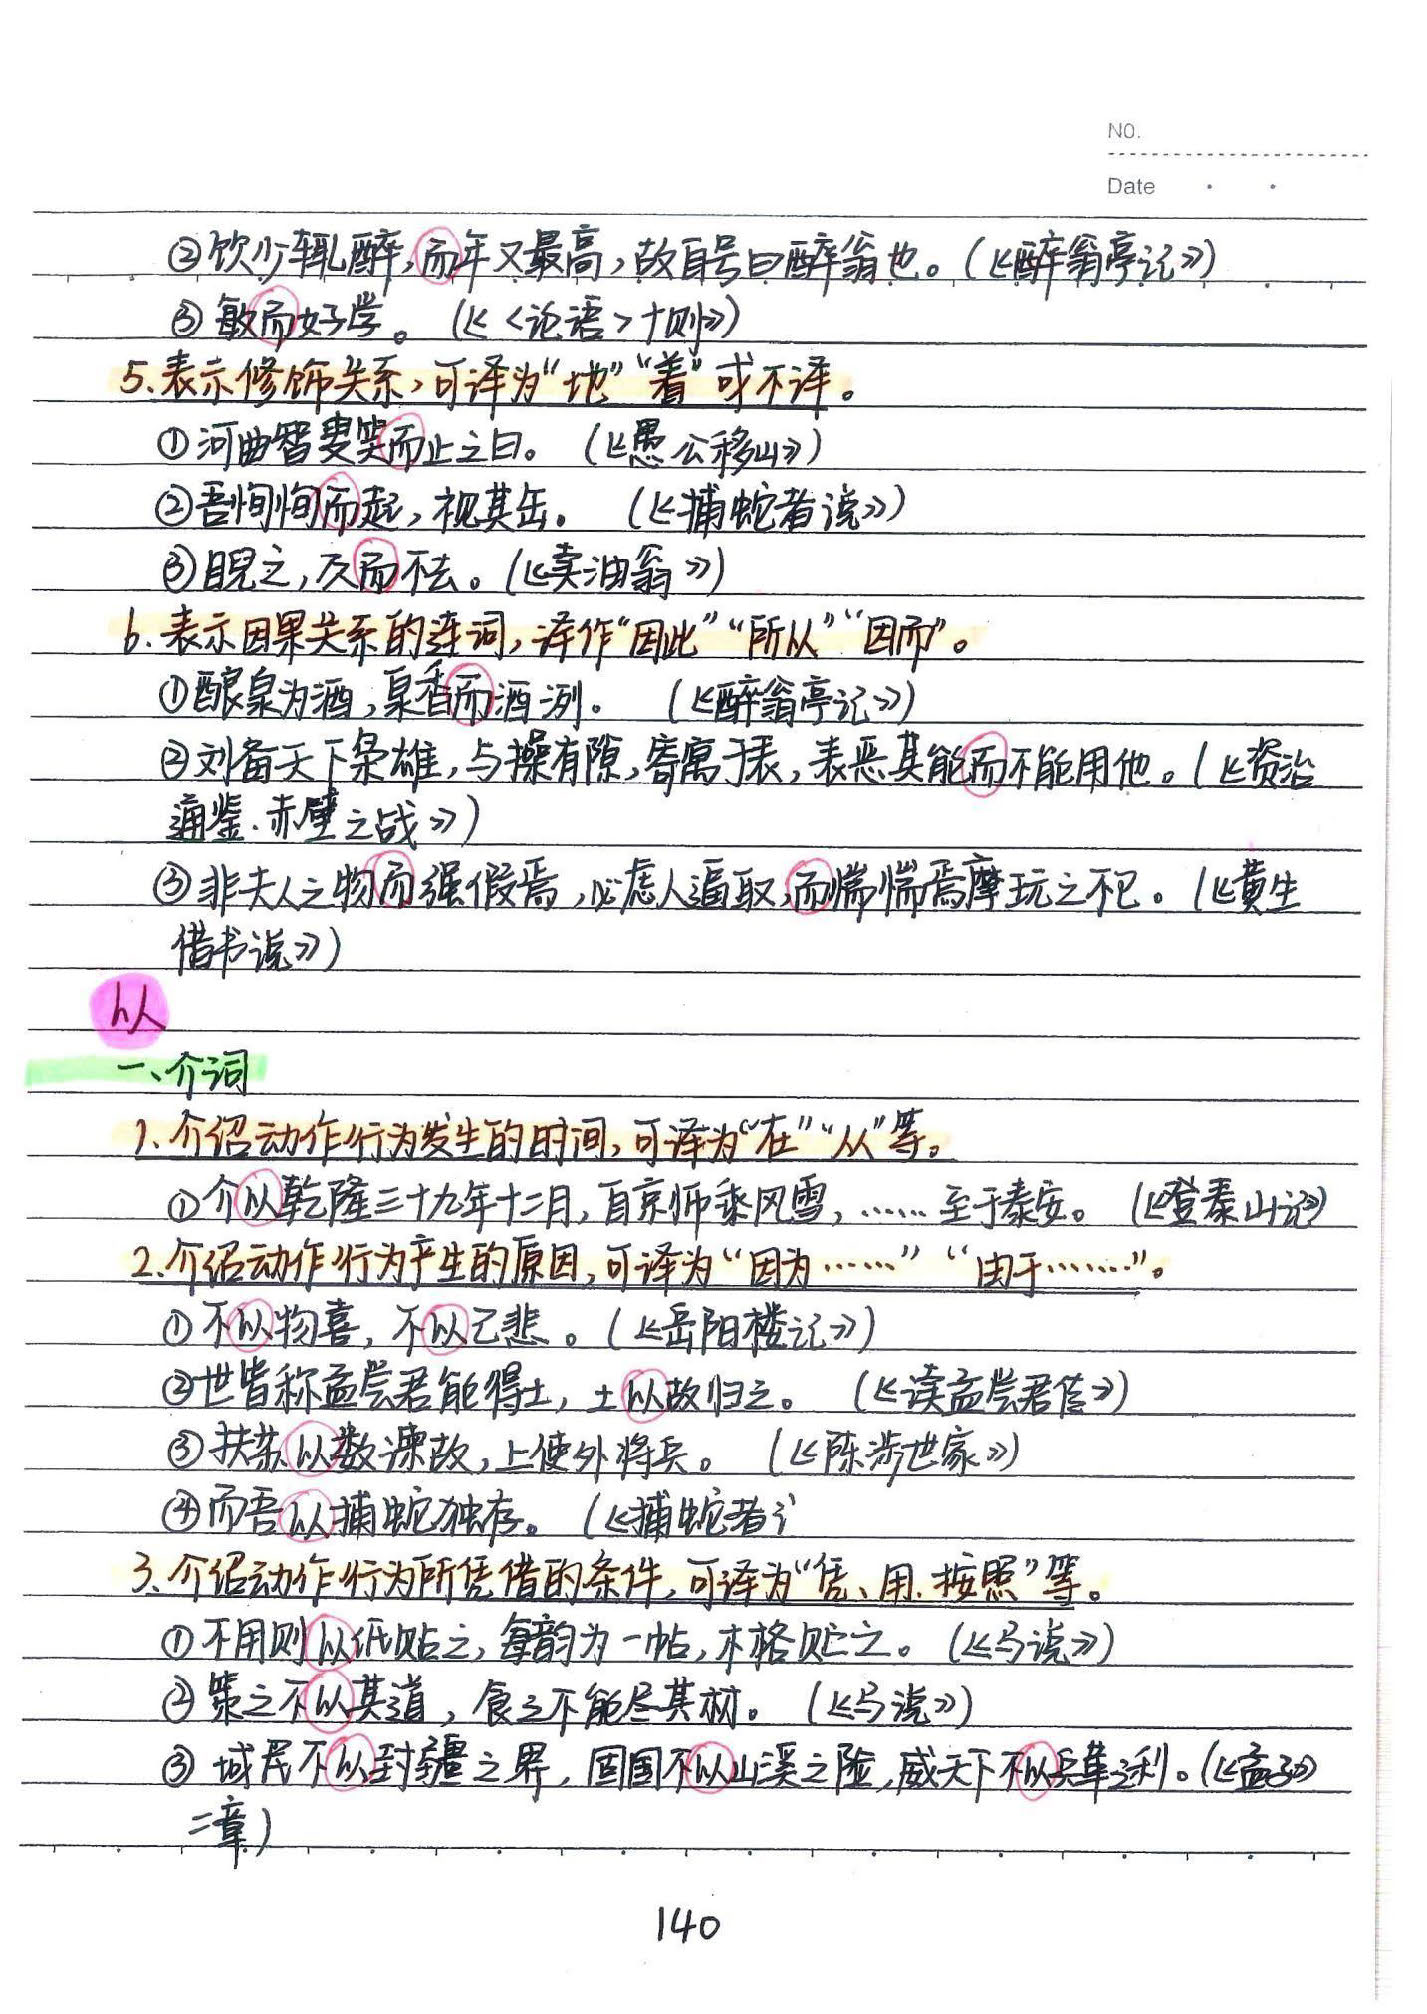 NO.
Date
②饮少辄醉,而年又最高,故自号曰醉翁也。(《醉翁亭记》)
③敏而好学。(《〈论语〉十则》)
5.表示修饰关系,可译为“地”“着”或不译。
①河曲智叟笑而止之曰。(《愚公移山》)
②吾恂恂而起,视其缶。(《捕蛇者说》)
③睨之,久而不去。(《卖油翁》)
6.表示因果关系的连词,译作“因此”“所以”“因而”。
①酿泉为酒,泉香而酒洌。(《醉翁亭记》)
②刘备天下枭雄,与操有隙,寄寓于表,表恶其能而不能用他。(《资治
通鉴·赤壁之战》)
③非夫人之物而强假焉,必虑人逼取,而惴惴焉摩玩之不已。(《黄生
借书说》)
以
一、介词
1.介绍动作行为发生的时间,可译为“在”“从”等。
①介以乾隆三十九年十二月,自京师乘风雪,……至于泰安。(《登泰山记》)
2.介绍动作行为产生的原因,可译为“因为……”“由于……”。
①不以物喜,不以己悲。(《岳阳楼记》)
②世皆称孟尝君能得士,士以故归之。(《读孟尝君传》)
③扶苏以数谏故,上使外将兵。(《陈涉世家》)
④而吾以捕蛇独存。(《捕蛇者
3.介绍动作行为所凭借的条件,可译为“凭、用、按照”等。
①不用则以纸贴之,每韵为一帖,木格贮之。(《马说》)
②策之不以其道,食之不能尽其材。(《马说》)
③域民不以封疆之界,固国不以山溪之险,威天下不以兵革之利。(《孟子》
二章)
140